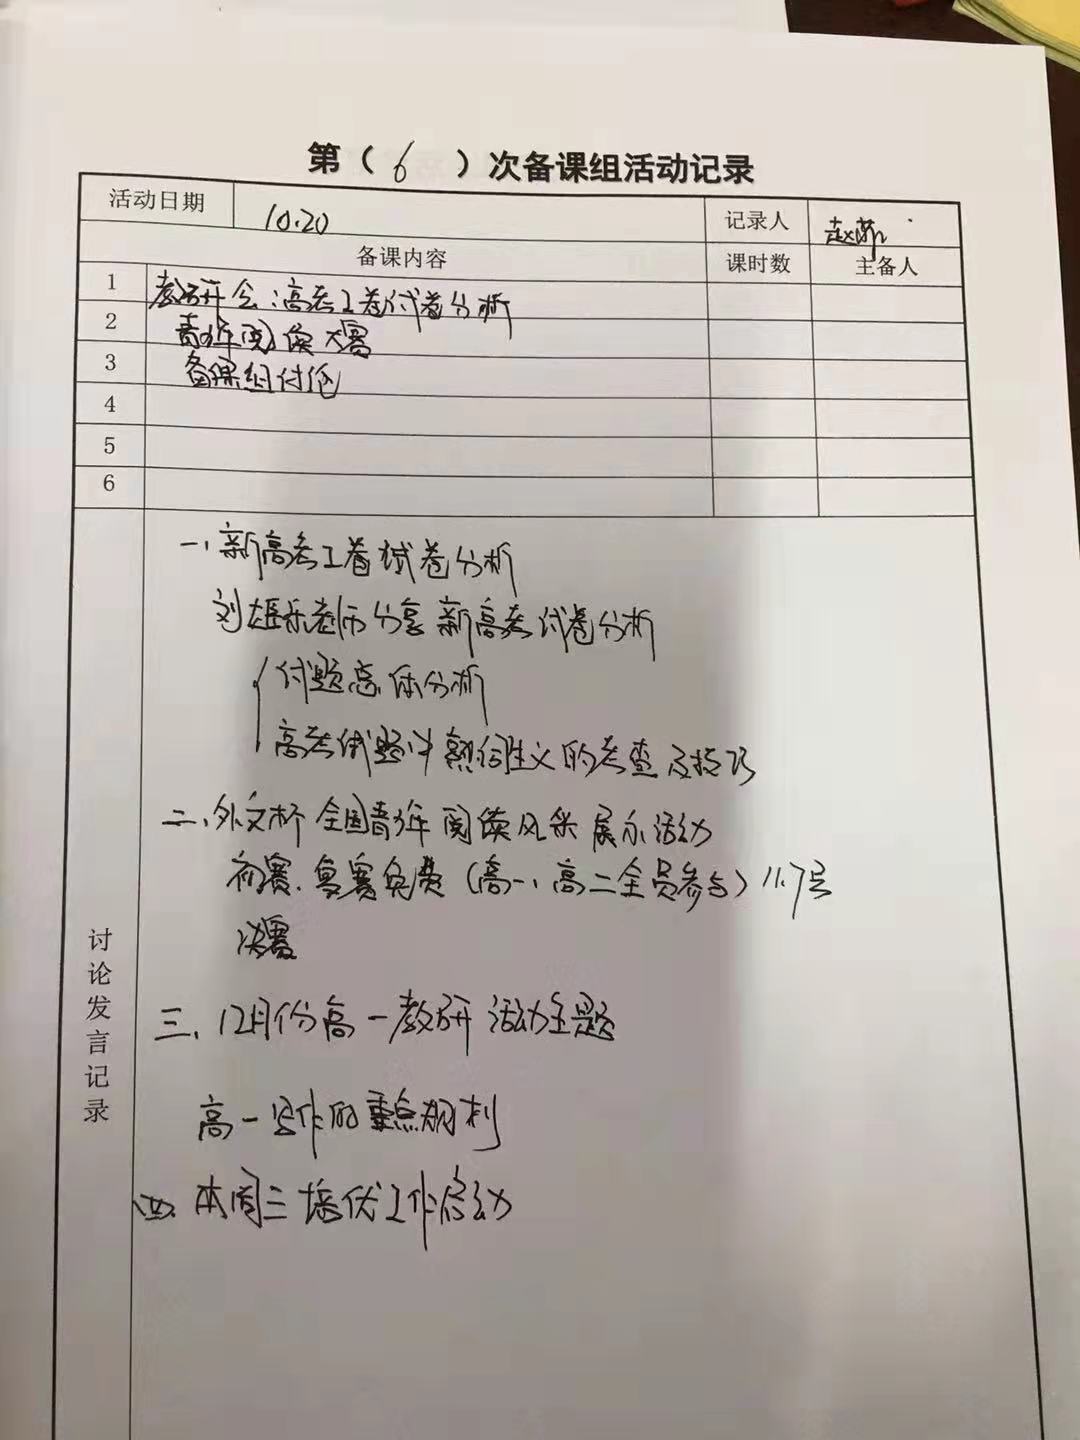 第（ 6 ）次备课组活动记录
活动日期 10.20 记录人 赵
备课内容 课时数 主备人
1 教研会:高考I卷试卷分析
2 青少年阅读大赛
3 备课组讨论
4
5
6
讨论发言记录
一、新高考I卷试卷分析
刘雄乐老师分享新高考试卷分析
试题总体分析
高考试题中熟词生义的考查及技巧
二、外文杯全国青少年阅读风采展示活动
初赛、复赛免费（高一、高二全员参与）11.7号
决赛
三、12月份高一教研活动主题
高一写作的重点
四、本周三培优工作启动